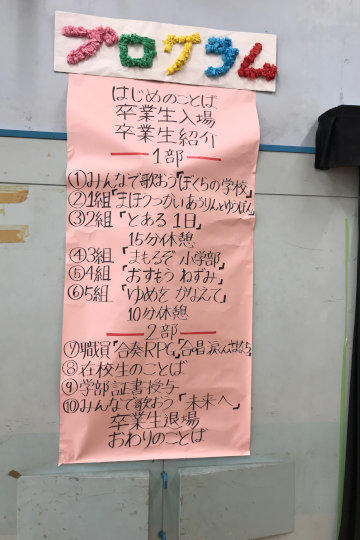 プログラム
はじめのことば
卒業生入場
卒業生紹介
1部
①みんなで歌おう「ぼくらの学校」
②1組「まほうつかいあうりんとゆうぼん」
③2組「とある1日」
15分休憩
④3組「まもろぞ 小学部」
⑤4組「おすもう ねずみ」
⑥5組「ゆめを かなえて」
10分休憩
2部
⑦職員「合奏RPG」「合唱
⑧在校生のことば
⑨学部証書授与
⑩みんなで歌おう「未来へ」
卒業生退場
おわりのことば